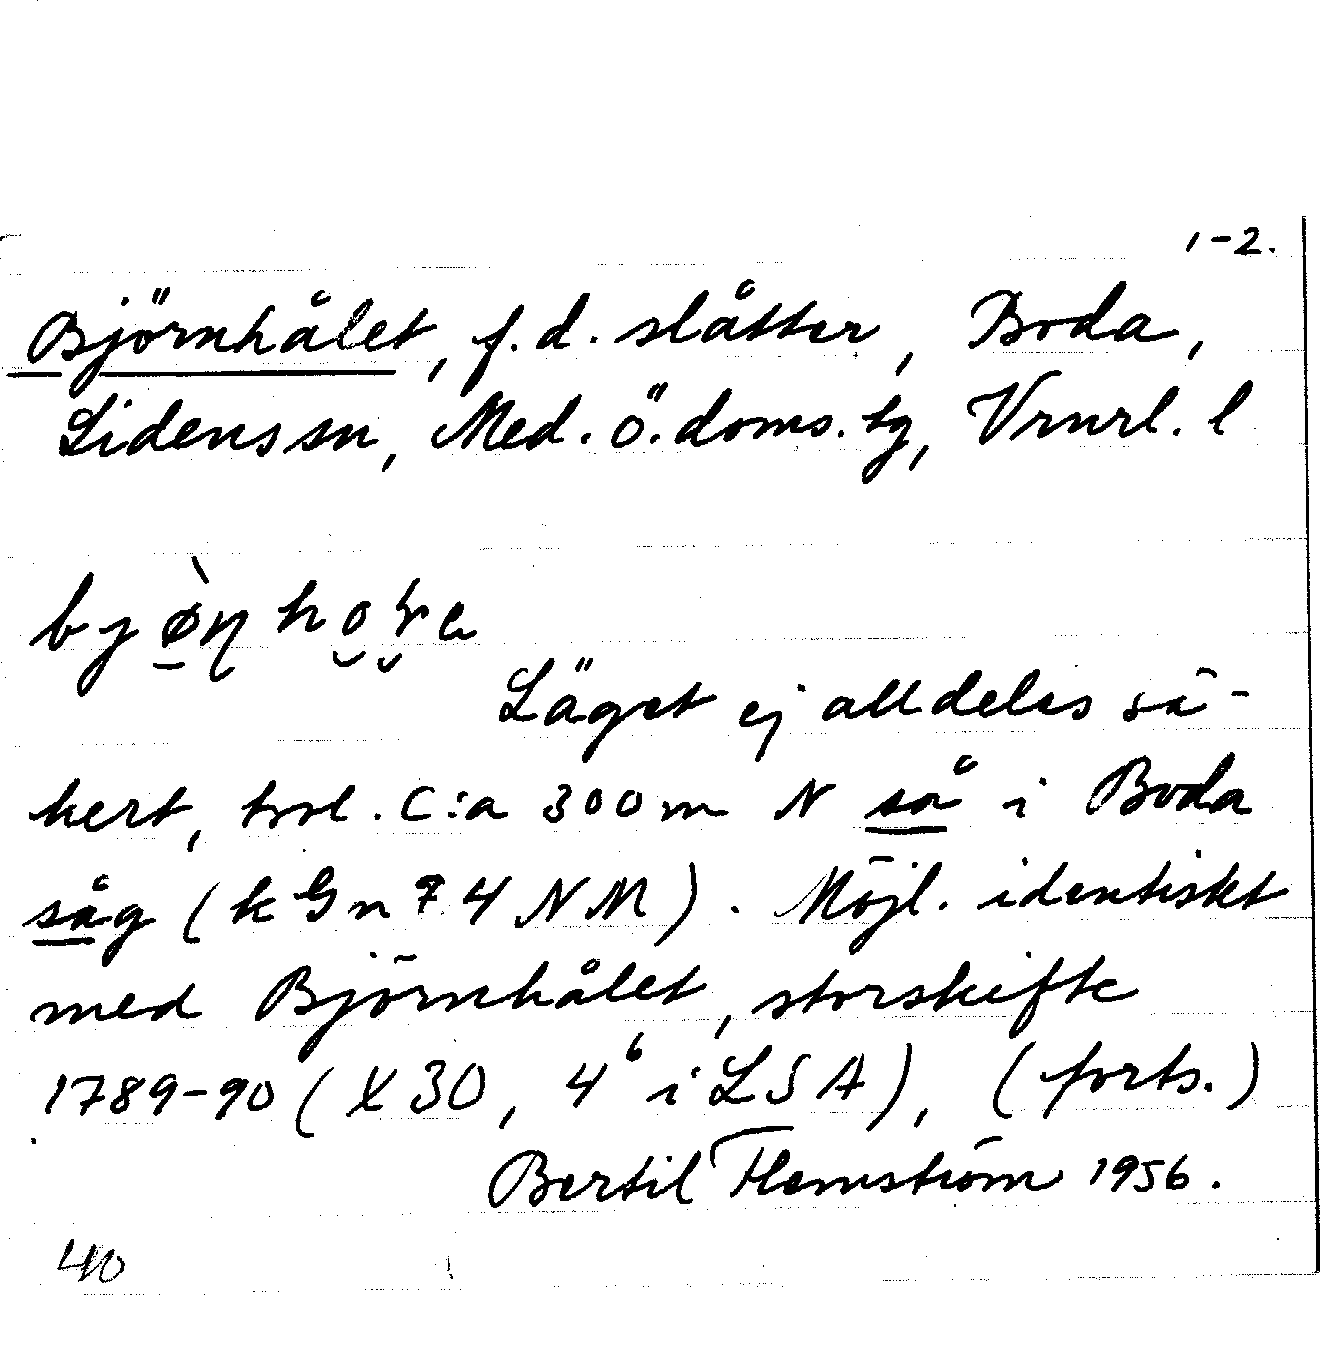 1-2.
Björnhålet, f.d. slåtter, Boda,
Lidens sn, Med. ö. doms. tg, Vrnrl. l
Läget ej alldeles sä-
kert, trol. C:a 300 m N så i Boda
såg (k Gn 74 NM). Möjl. identiskt
med Björnhålet, storskifte
1789-90 (X30, 4⁶ i LSA), (forts.)
Bertil Flemström 1956.
40